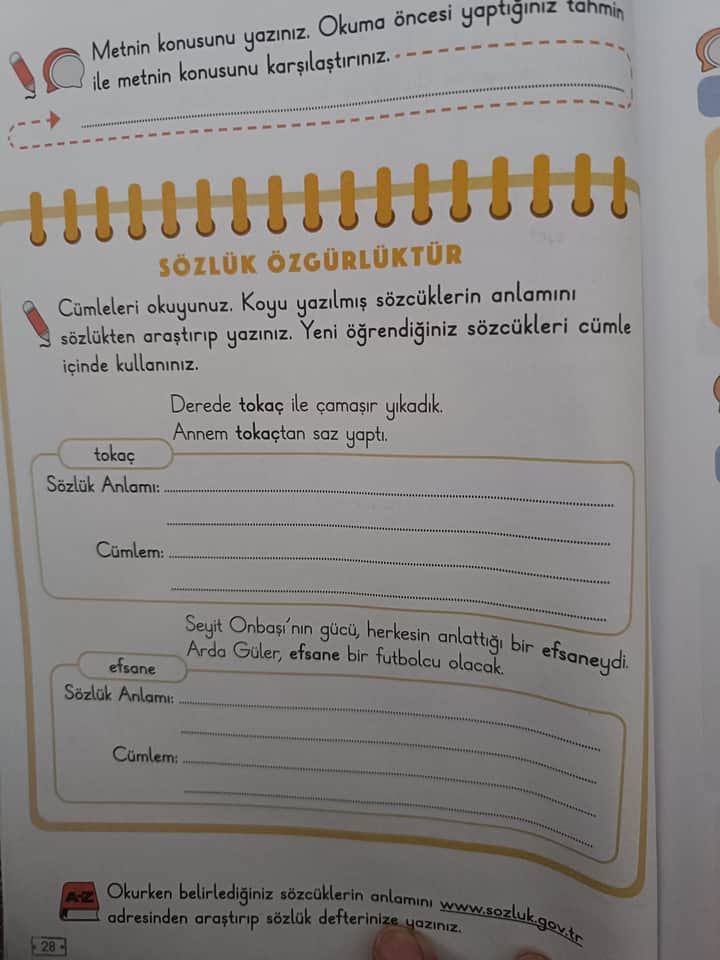 Metnin konusunu yazınız. Okuma öncesi yaptığınız tahmin
ile metnin konusunu karşılaştırınız.
SÖZLÜK ÖZGÜRLÜKTÜR
Cümleleri okuyunuz. Koyu yazılmış sözcüklerin anlamını
sözlükten araştırıp yazınız. Yeni öğrendiğiniz sözcükleri cümle
içinde kullanınız.
Derede tokaç ile çamaşır yıkadık.
Annem tokaçtan saz yaptı.
tokaç
Sözlük Anlamı:
Cümlem:
Seyit Onbaşı'nın gücü, herkesin anlattığı bir efsaneydi.
Arda Güler, efsane bir futbolcu olacak.
efsane
Sözlük Anlamı:
Cümlem:
A-Z
Okurken belirlediğiniz sözcüklerin anlamını www.sozluk.gov.tr
adresinden araştırıp sözlük defterinize yazınız.
28